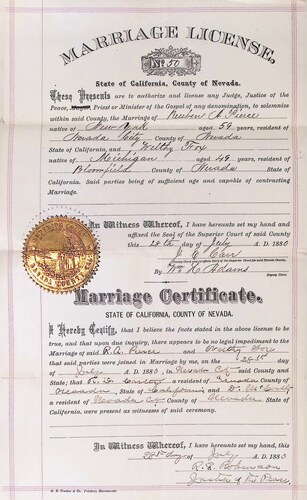 MARRIAGE LICENSE,
No. 50
State of California, County of Nevada.
These Presents are to authorize and license any Judge, Justice of the
Peace, Mayor, Priest or Minister of the Gospel of any denomination, to solemnize
within said County, the Marriage of Reuben A. Pierce
native of New York aged 59 years, resident of
Nevada City County of Nevada
State of California, and Wealthy Fox
native of Michigan aged 49 years, resident of
Bloomfield County of Nevada State of
California. Said parties being of sufficient age and capable of contracting
Marriage.
In Witness Whereof, I have hereunto set my hand and
affixed the Seal of the Superior Court of said County
this 28th day of July A. D. 1880
J. E. Carr
By Wm H. Adams
Deputy Clerk.
Marriage Certificate.
STATE OF CALIFORNIA, COUNTY OF NEVADA.
I Hereby Certify, that I believe the facts stated in the above license to be
true, and that upon due inquiry, there appears to be no legal impediment to the
Marriage of said R. A. Pierce and Fox
that said parties were joined in Marriage by me, on the 28th
day of July A. D. 1880, in Nevada City said County and
State; that a resident of County
of Nevada State of California and
a resident of Nevada City County of Nevada State of
California, were present as witnesses of said ceremony.
In Witness Whereof, I have hereunto set my hand this
28th day of July 1880
R. Robinson
Justice of the Peace.